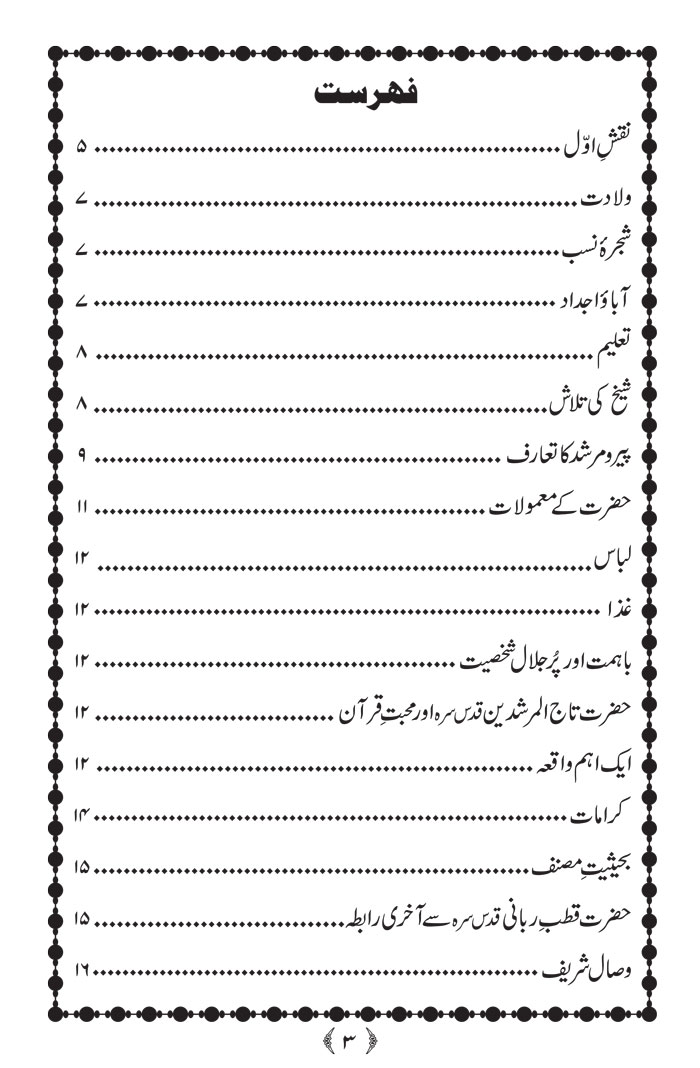 فهرست
نقشِ اوّل ۵
ولادت ۷
شجرۂ نسب ۷
آباؤ اجداد ۷
تعلیم ۸
شیخ کی تلاش ۸
پیر و مرشد کا تعارف ۹
حضرت کے معمولات ۱۱
لباس ۱۲
غذا ۱۲
باہمت اور پُر جلال شخصیت ۱۲
حضرت تاج المرشدین قدس سرہ اور محبتِ قرآن ۱۲
ایک اہم واقعہ ۱۲
کرامات ۱۴
بحیثیتِ مصنف ۱۵
حضرت قطبِ ربانی قدس سرہ سے آخری رابطہ ۱۵
وصال شریف ۱۶
﴿ ۳ ﴾